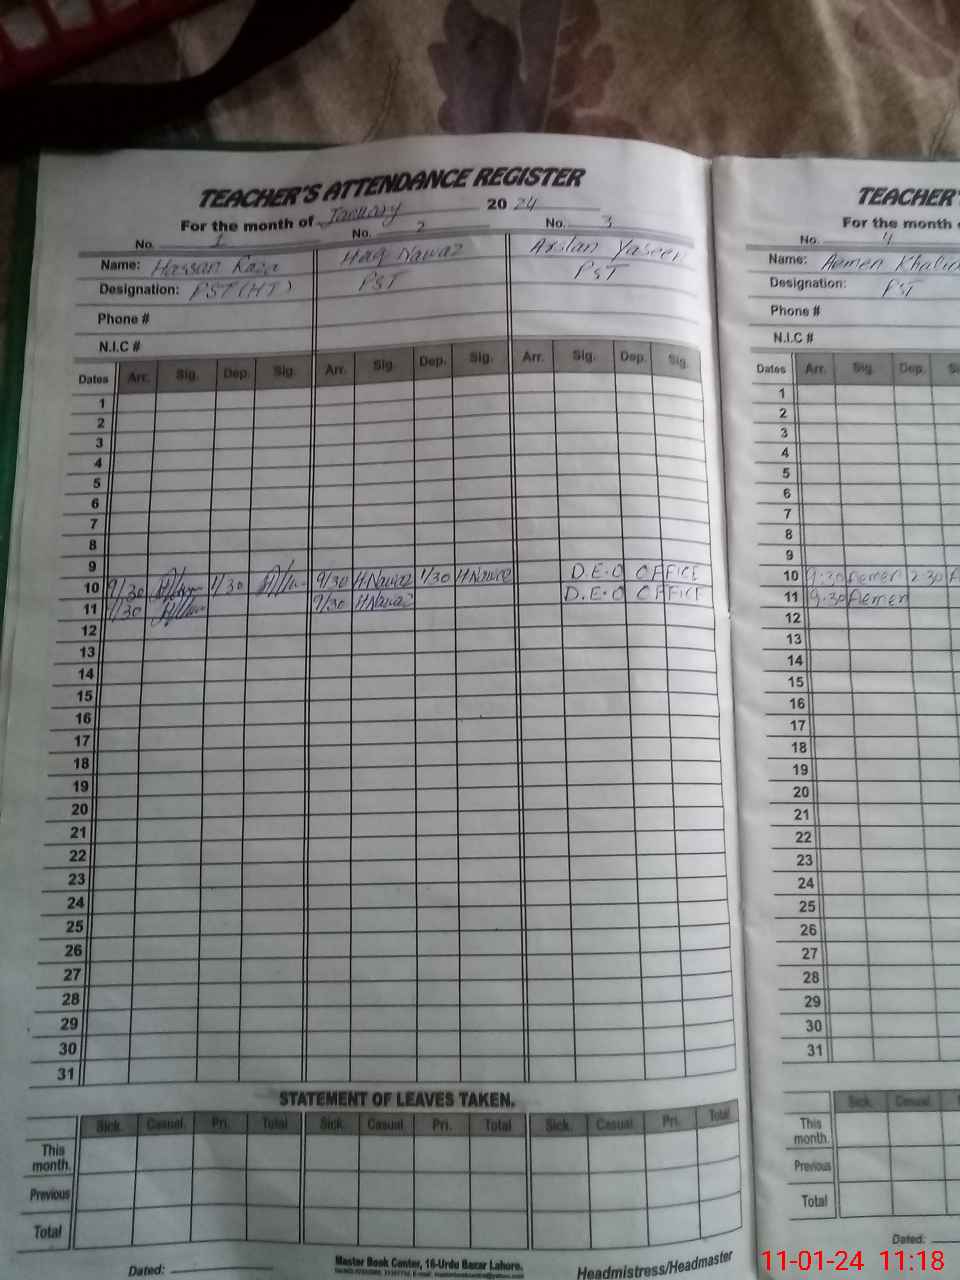 TEACHER'S ATTENDANCE REGISTER
For the month of January 2024
No. 1 No. 2 No. 3
Name: Hassan Raza Haq Nawaz Arslan Yaseen
Designation: PST(HT) PST PST
Phone #
N.I.C #
Dates Arr. Sig. Dep. Sig. Arr. Sig. Dep. Sig. Arr. Sig. Dep. Sig.
1
2
3
4
5
6
7
8
9
10 9/30 1/30 9/30 H Nawaz 1/30 H Nawaz D.E.O OFFICE
11 9/30 9/30 H Nawaz D.E.O OFFICE
12
13
14
15
16
17
18
19
20
21
22
23
24
25
26
27
28
29
30
31
STATEMENT OF LEAVES TAKEN.
Sick. Casual. Pri. Total Sick. Casual Pri. Total Sick. Casual. Pri. Total
This month.
Previous
Total
Dated:
Master Book Center, 16-Urdu Bazar Lahore.
Headmistress/Headmaster
TEACHER'
For the month o
No. 4
Name: Aemen
Designation: PST
Phone #
N.I.C #
Dates Arr. Sig. Dep.
1
2
3
4
5
6
7
8
9
10 9:30 Aemen 2:30
11 9:30 Aemen
12
13
14
15
16
17
18
19
20
21
22
23
24
25
26
27
28
29
30
31
Sick. Casual.
This month.
Previous
Total
Dated:
11-01-24 11:18